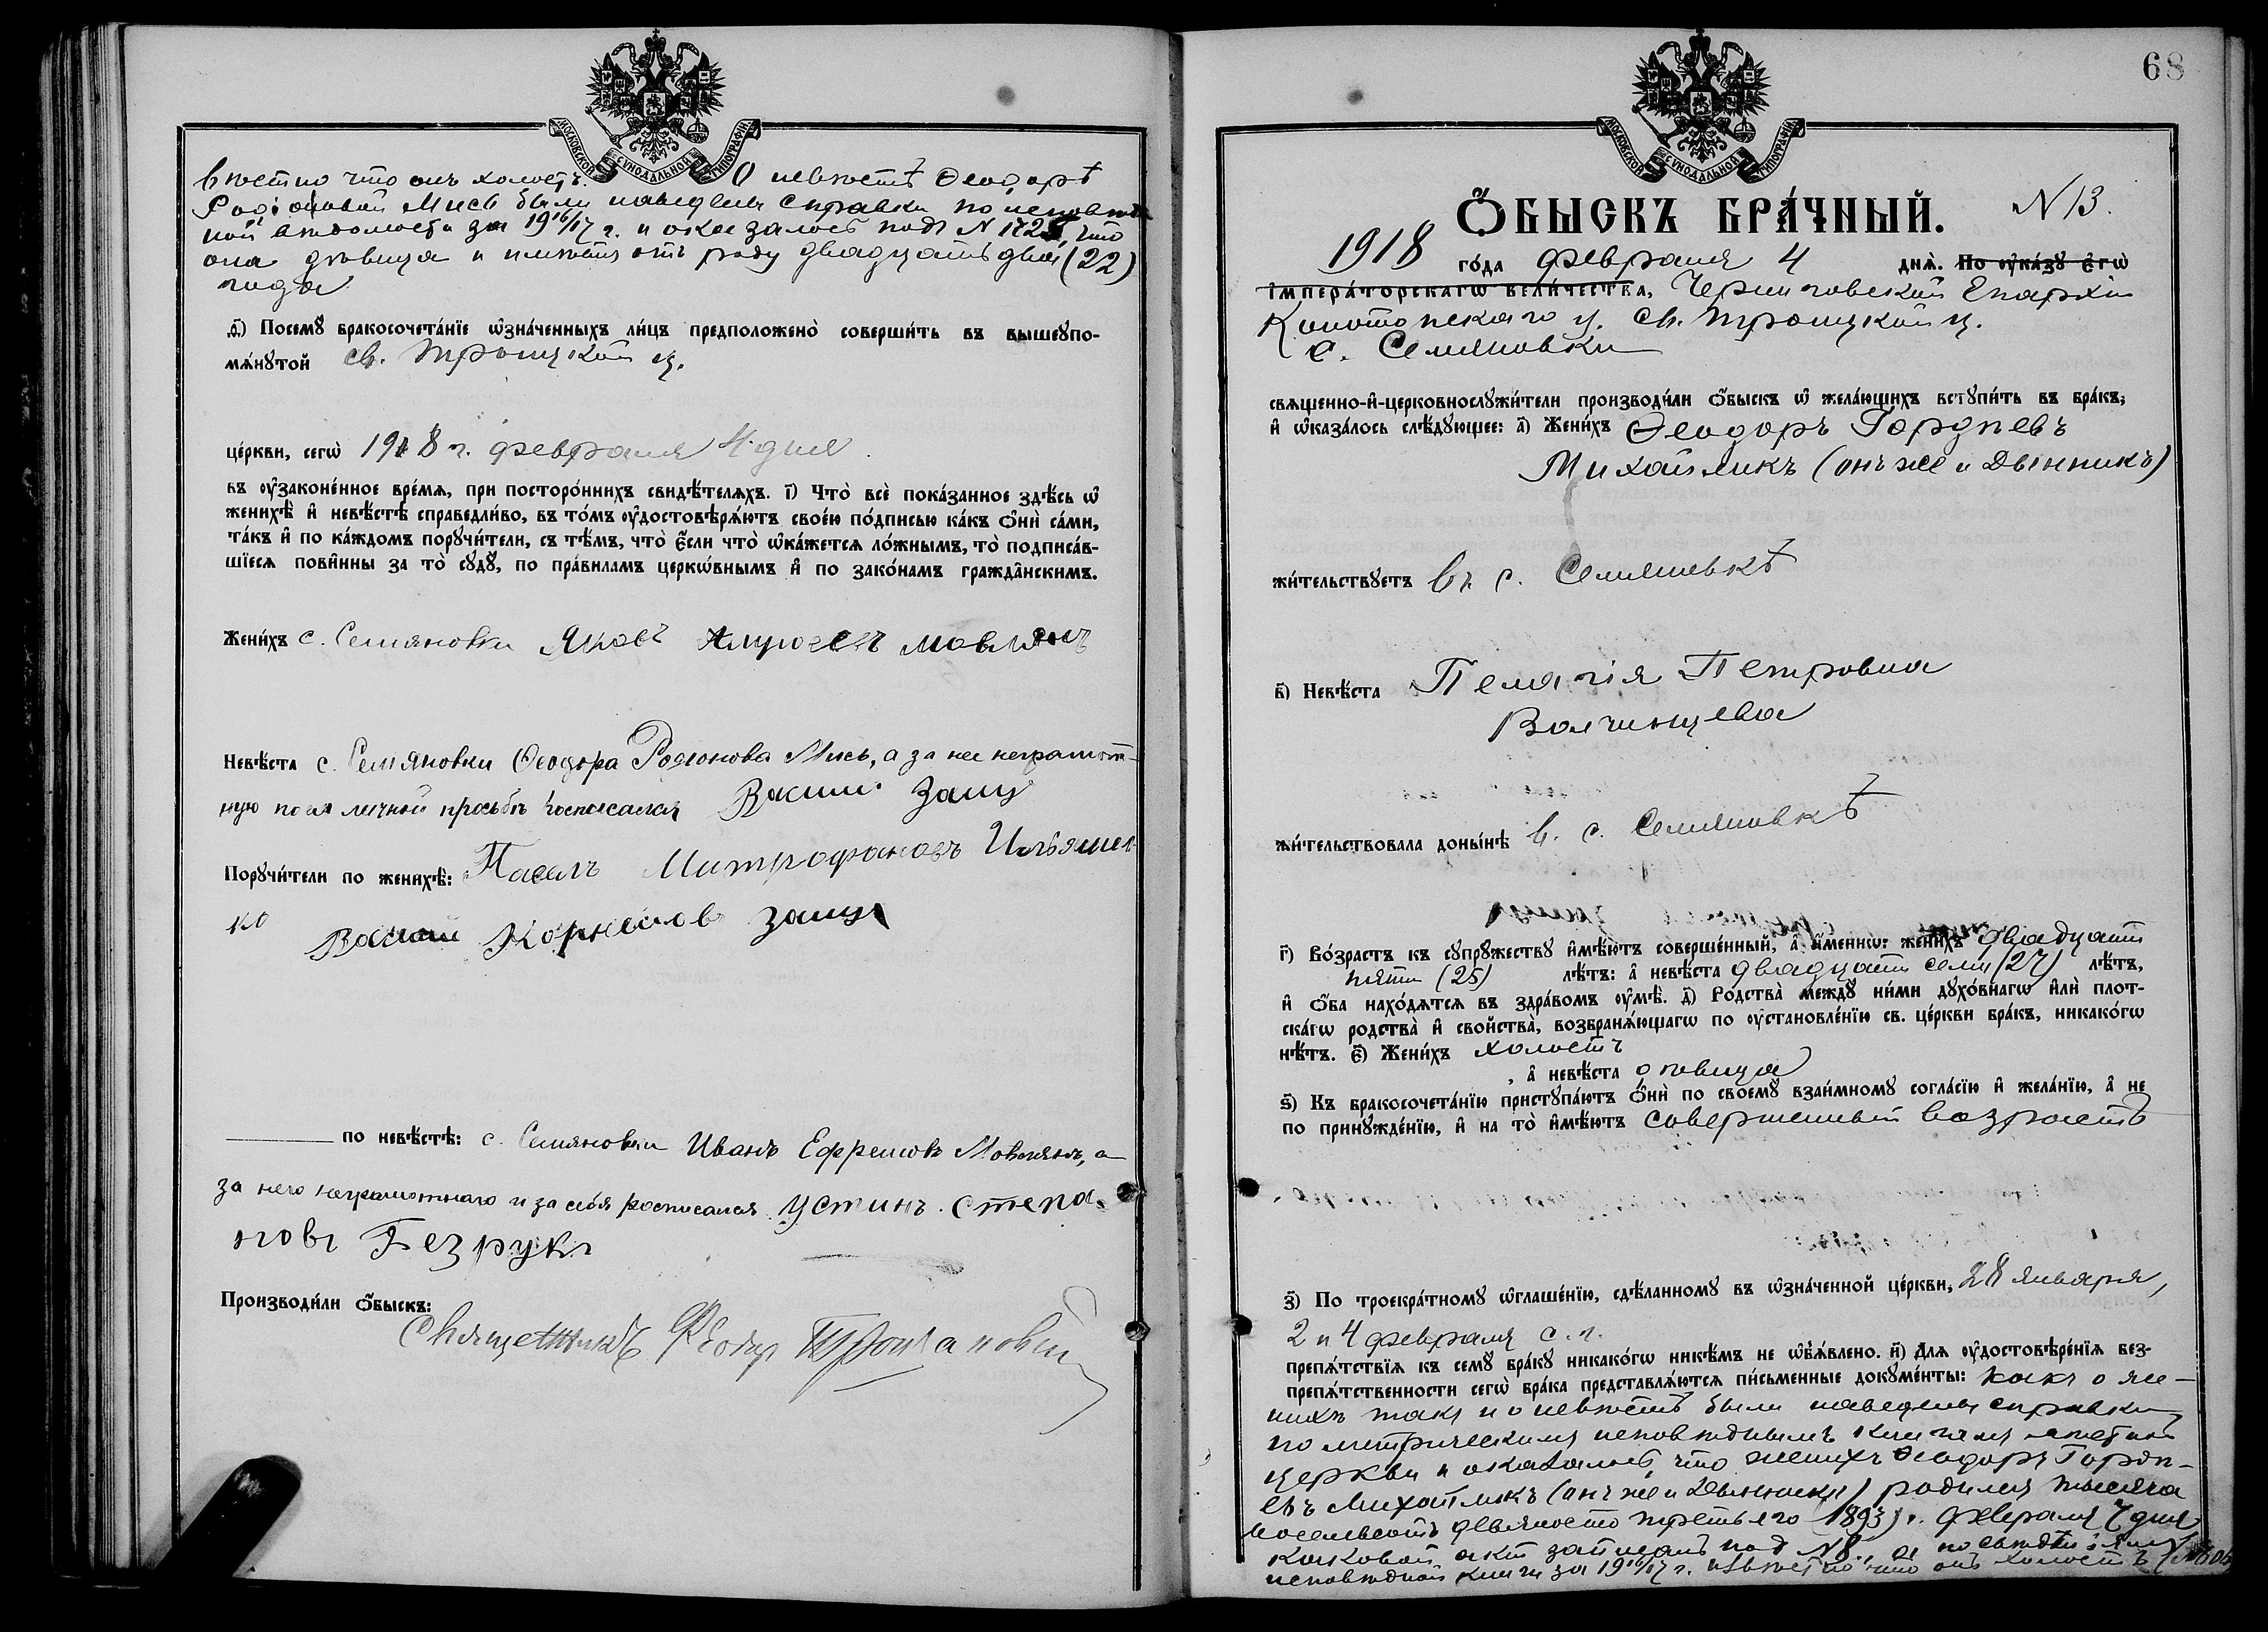 МОСКОВСКОЙ СѴНОДАЛЬНОЙ ТИПОГРАФІИ
вѣстно что онъ холостъ. О невѣстѣ Ѳеодорѣ
Родіоновой Мись были наведены справки по исповѣд
ной вѣдомости за 1916/17 г. и оказалось подъ N что
она дѣвица и имѣетъ отъ роду двадцать два (22)
года
ѳ) Посемꙋ бракосочета́нїе ѡ҆зна́ченныхъ ли́цъ предположено̀ соверши́ть въ вышеꙋпо-
мѧ́нꙋтой св. Троицкой ц.
це́ркви, сегѡ̀ 1918 г. февраля 4 дня.
въ ᲂу҆законе́нное вре́мѧ, при посторо́ннихъ свидѣ́телѧхъ. і҃) Что̀ всѐ пока́занное здѣ́сь ѡ҆
женихѣ̀ и҆ невѣ́стѣ справедли́во, въ то́мъ ᲂу҆достовѣрѧ́ютъ свое́ю по́дписью ка́къ ѻ҆нѝ са́ми,
та́къ и҆ по ка́ждомъ порꙋчи́тели, съ тѣ́мъ, что̀ є҆́сли что̀ ѡ҆ка́жетсѧ ло́жнымъ, то̀ подписа́в-
шїесѧ пови́нны за то̀ сꙋдꙋ̀, по пра́виламъ церкѡ́внымъ и҆ по зако́намъ гражда́нскимъ.
Жени́хъ с. Семяновки Яковъ мовлянъ
Невѣ́ста с. Семяновки Ѳеодора Родіонова Мись, а за нее неграмот-
ную по ея личной просьбѣ росписался Васили Заиц
Порꙋчи́тели по женихѣ̀: Павелъ Митрофановъ Ильяшен-
ко
Васили Корнеиловъ Заиц
по невѣ́стѣ: с. Семяновки Иванъ Ефремовъ Мовлянъ, а
за него неграмотнаго и за себя росписался Устинъ Степа-
новъ Безрукъ
Производи́ли ѻ҆́быскъ:
Священникъ Ѳеодоръ
68
МОСКОВСКОЙ СѴНОДАЛЬНОЙ ТИПОГРАФІИ
Ѻ҆́БЫСКЪ БРА́ЧНЫЙ. N 13.
1918 го́да февраля 4 днѧ̀. По ᲂу҆ка́зꙋ Є҆гѡ̀
І҆мпера́торскагѡ вели́чества, Черниговской Епархіи
Конотопскаго у. св. Троицкой ц.
с. Семяновки
свѧще́нно-и҆-церковнослꙋжи́тели производи́ли ѻ҆́быскъ ѡ҆ жела́ющихъ встꙋпи́ть въ бра́къ;
и҆ ѡ҆каза́лось слѣ́дꙋющее: а҃) Жени́хъ Ѳеодоръ Гордѣевъ
Михайликъ (онъ же и Дынникъ)
жи́тельствꙋетъ въ с. Семяновкѣ
в҃) Невѣ́ста Пелагія Петровна
Волчинцева
жи́тельствовала доны́нѣ в. с. Семяновкѣ
г҃) Во́зрастъ къ сꙋпрꙋ́жествꙋ и҆мѣ́ютъ соверше́нный, а҆ и҆́меннѡ: жени́хъ двадцати
пяти (25) лѣ́тъ: а҆ невѣ́ста двадцати семи (27) лѣ́тъ,
и҆ ѻ҆́ба нахо́дѧтсѧ въ здра́вомъ ᲂу҆мѣ̀. д҃) Родства̀ междꙋ̀ ни́ми дꙋхо́внагѡ и҆лѝ плот-
ска́гѡ родства̀ и҆ сво́йства̀, возбранѧ́ющагѡ по ᲂу҆становле́нїю св. це́ркви бра́къ, никако́гѡ
нѣ́тъ. є҃) Жени́хъ холостъ
, а҆ невѣ́ста дѣвица
ѕ҃) Къ бракосочета́нїю пристꙋпа́ютъ ѻ҆нѝ по своемꙋ̀ взаи́мномꙋ согла́сїю и҆ жела́нїю, а҆ не
по принꙋжде́нїю, и҆ на то̀ и҆мѣ́ютъ совершенный возрастъ
з҃) По троекра́тномꙋ ѡ҆глаше́нїю, сдѣ́ланномꙋ въ ѡ҆зна́ченной це́ркви, 28 января,
2 и 4 февраля с. г.
препѧ́тствїѧ къ семꙋ̀ бра́кꙋ никако́гѡ никѣ́мъ не ѡ҆б̾ѧ́влено. и҃) Длѧ ᲂу҆достовѣре́нїѧ без-
препѧ́тственности сегѡ̀ бра́ка представлѧ́ютсѧ пи́сьменные докꙋме́нты: какъ о же-
нихѣ такъ и о невѣстѣ были наведены справки
по метрическимъ исповѣднымъ книгамъ мѣстной
церкви и оказалось, что женихъ Ѳеодоръ Гордѣ-
евъ Михайликъ (онъ же и Дынникъ) родился тысяча
восемьсотъ девяносто третьяго (1893) г. февраля 7 дня
каковой актъ записанъ подъ N 8, а по свѣдѣніямъ
исповѣдной книги за 1916/17 г. извѣстно что онъ холостъ